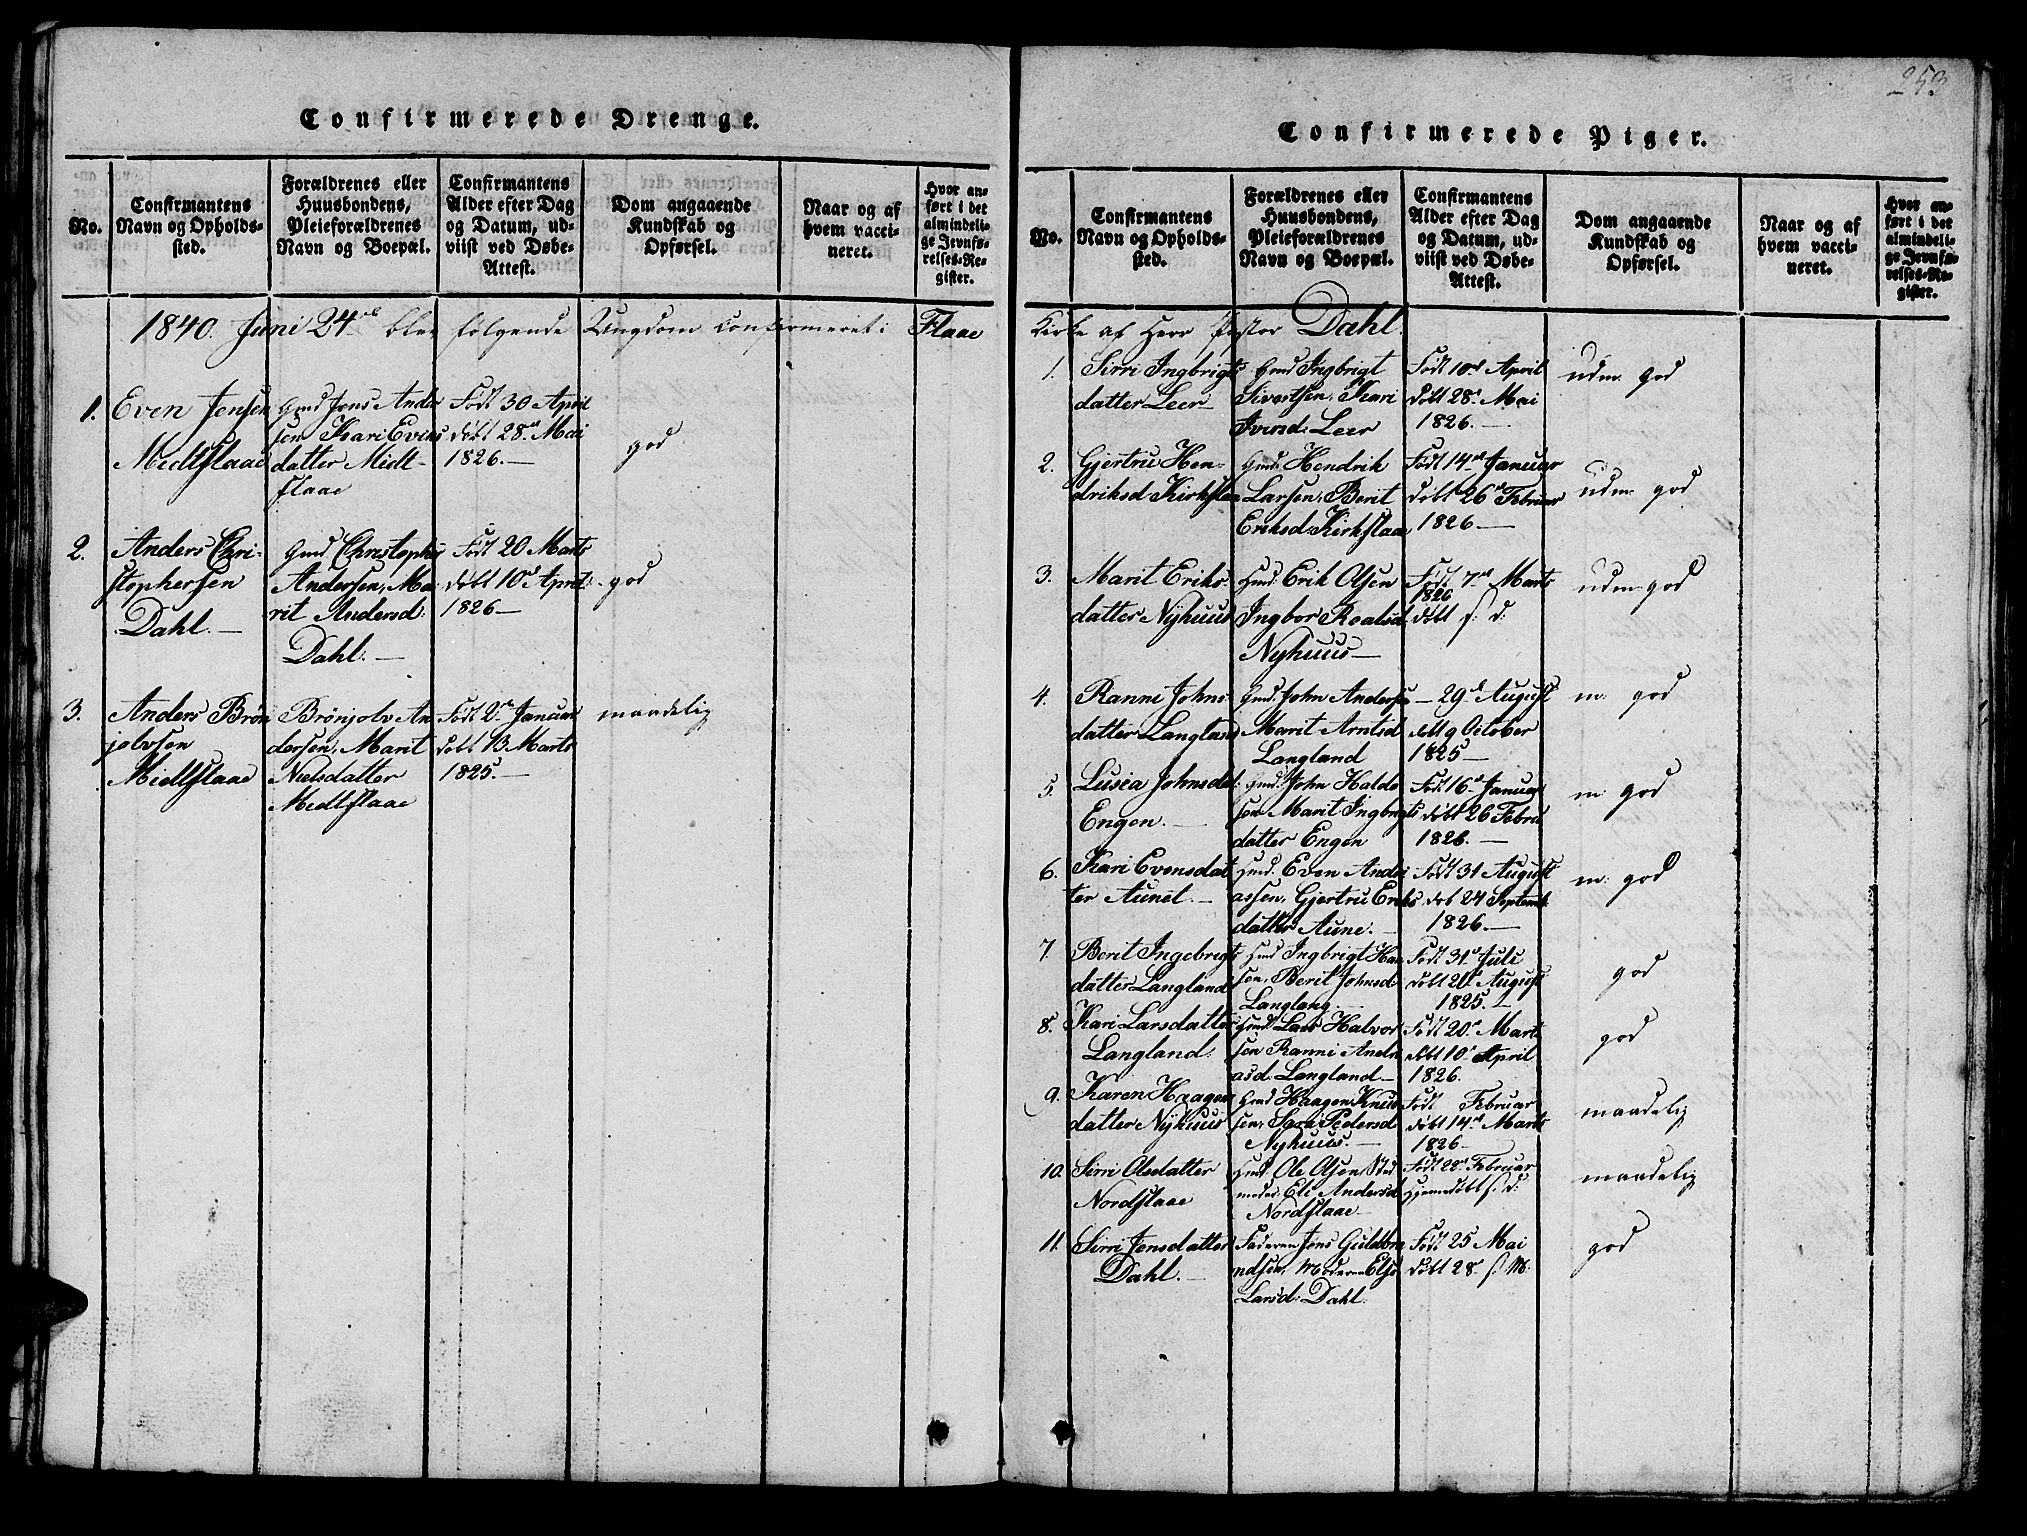 253
Confirmerede Drenge.
No.
Confirmantens
Navn og Opholds-
sted.
Forældrenes eller
Huusbondens,
Pleieforældrenes
Navn og Boepæl.
Confirmantens
Alder efter Dag
og Datum, ud-
viist ved Døbe-
Attest.
Dom angaaende
Kundskab og
Opførsel.
Naar og af
hvem vacci-
neret.
Hvor an-
ført i det
almindeli-
ge Jevnfø-
relses-Re-
gister.
1840. Juni 24de blev følgende Ungdom confirmeret i Flaae
1.
Even Jensen
Medtflaae
Gmd Jens Ander
sen Kari Evens
datter Midt-
flaae
Født 30 April
døbt 28de Mai
1826.—
god
2.
Anders Chri-
stophersen
Dahl.—
Gmd Christopher
Andersen, Ma
rit Andersd.
Dahl.—
Født 20 Marts
døbt 10de April
1826—
god
3.
Anders Brön
jolvsen
Miedtflaae
Brönjolv An
dersen, Marit
Nielsdatter
Medtflaae
Født 2de Januar
døbt 13 Marts
1825.—
maadelig
Confirmerede Piger.
No.
Confirmantens
Navn og Opholds-
sted.
Forældrenes eller
Huusbondens,
Pleieforældrenes
Navn og Boepæl.
Confirmantens
Alder efter Dag
og Datum, ud-
viist ved Døbe-
Attest.
Dom angaaende
Kundskab og
Opførsel.
Naar og af
hvem vacci-
neret.
Hvor an-
ført i det
almindeli-
ge Jevnfø-
relses-Re-
gister.
Kirke af Herr Pastor Dahl.
1.
Sirri Ingbrigts
datter Leer
Gmd Ingbrigt
Sivertsen, Kari
Iversd: Leer
Født 10de April
døbt 28de Mai
1826.—
udm: god
2.
Gjertru Hen-
driksd Kirkflaae
Gmd: Hendrik
Larsen, Berit
Eriksd: Kirkflaae
Født 14de Januar
døbt 26de Februar
1826—
udm: god
3.
Marit Eriks
datter Nyhuus
Hmd: Erik Olsen
Ingbor Roalsd.
Nyhuus—
Født 7de Marts
1826
døbt s: d:
udm: god
4.
Ranni Johns-
datter Langland
Gmd: John Anderse
Marit Arntsd
Langland
— 29de August
døbt 9 October
1825—
m: god
5.
Lusia Johnsdat:
Engen.—
Gmd: John Haldo
sen Marit Ingbrigts
datter Engen
Født 16de Januar
døbt 26 Febru
1826.—
m: god
6.
Kari Evensdat
ter Aunet.—
Hmd: Even Andre
assen, Gjertru Eriks
datter Aune.—
Født 31 August
døbt 24 Septemb:
1826.—
m: god
7.
Berit Ingebrigts
datter Langland
Hmd Ingbrigt Han
sen, Berit Johnsd:
Langlang—
Født 31de Juli
døbt 21de August
1825.—
god
8.
Kari Larsdatter
Langland.
Hmd Lars Halvor
sen Ranni Andre
asd: Langland—
Født 20de Marts
døbt 10de April
1826.
god
9.
Karen Haagen
datter Nyhuus
Hmd Haagen Knud
sen, Sara Pedersd
Nyhuus.—
Født Februar
døbt 14de Marts
1826—
maadelig
10.
Sirri Olsdatter
Nordflaae
Hmd: Ole Olsen Sted
moder Eli Andersd
Nordflaae—
Født 22de Februar
Hjemmedøbt s: d:
maadelig
11.
Sirri Jensdatter
Dahl.—
Faderen Jens Guldbra
ndsen, Moderen Else
Larsd: Dahl.
Født 25 Mai
døbt 28de s: M:
god